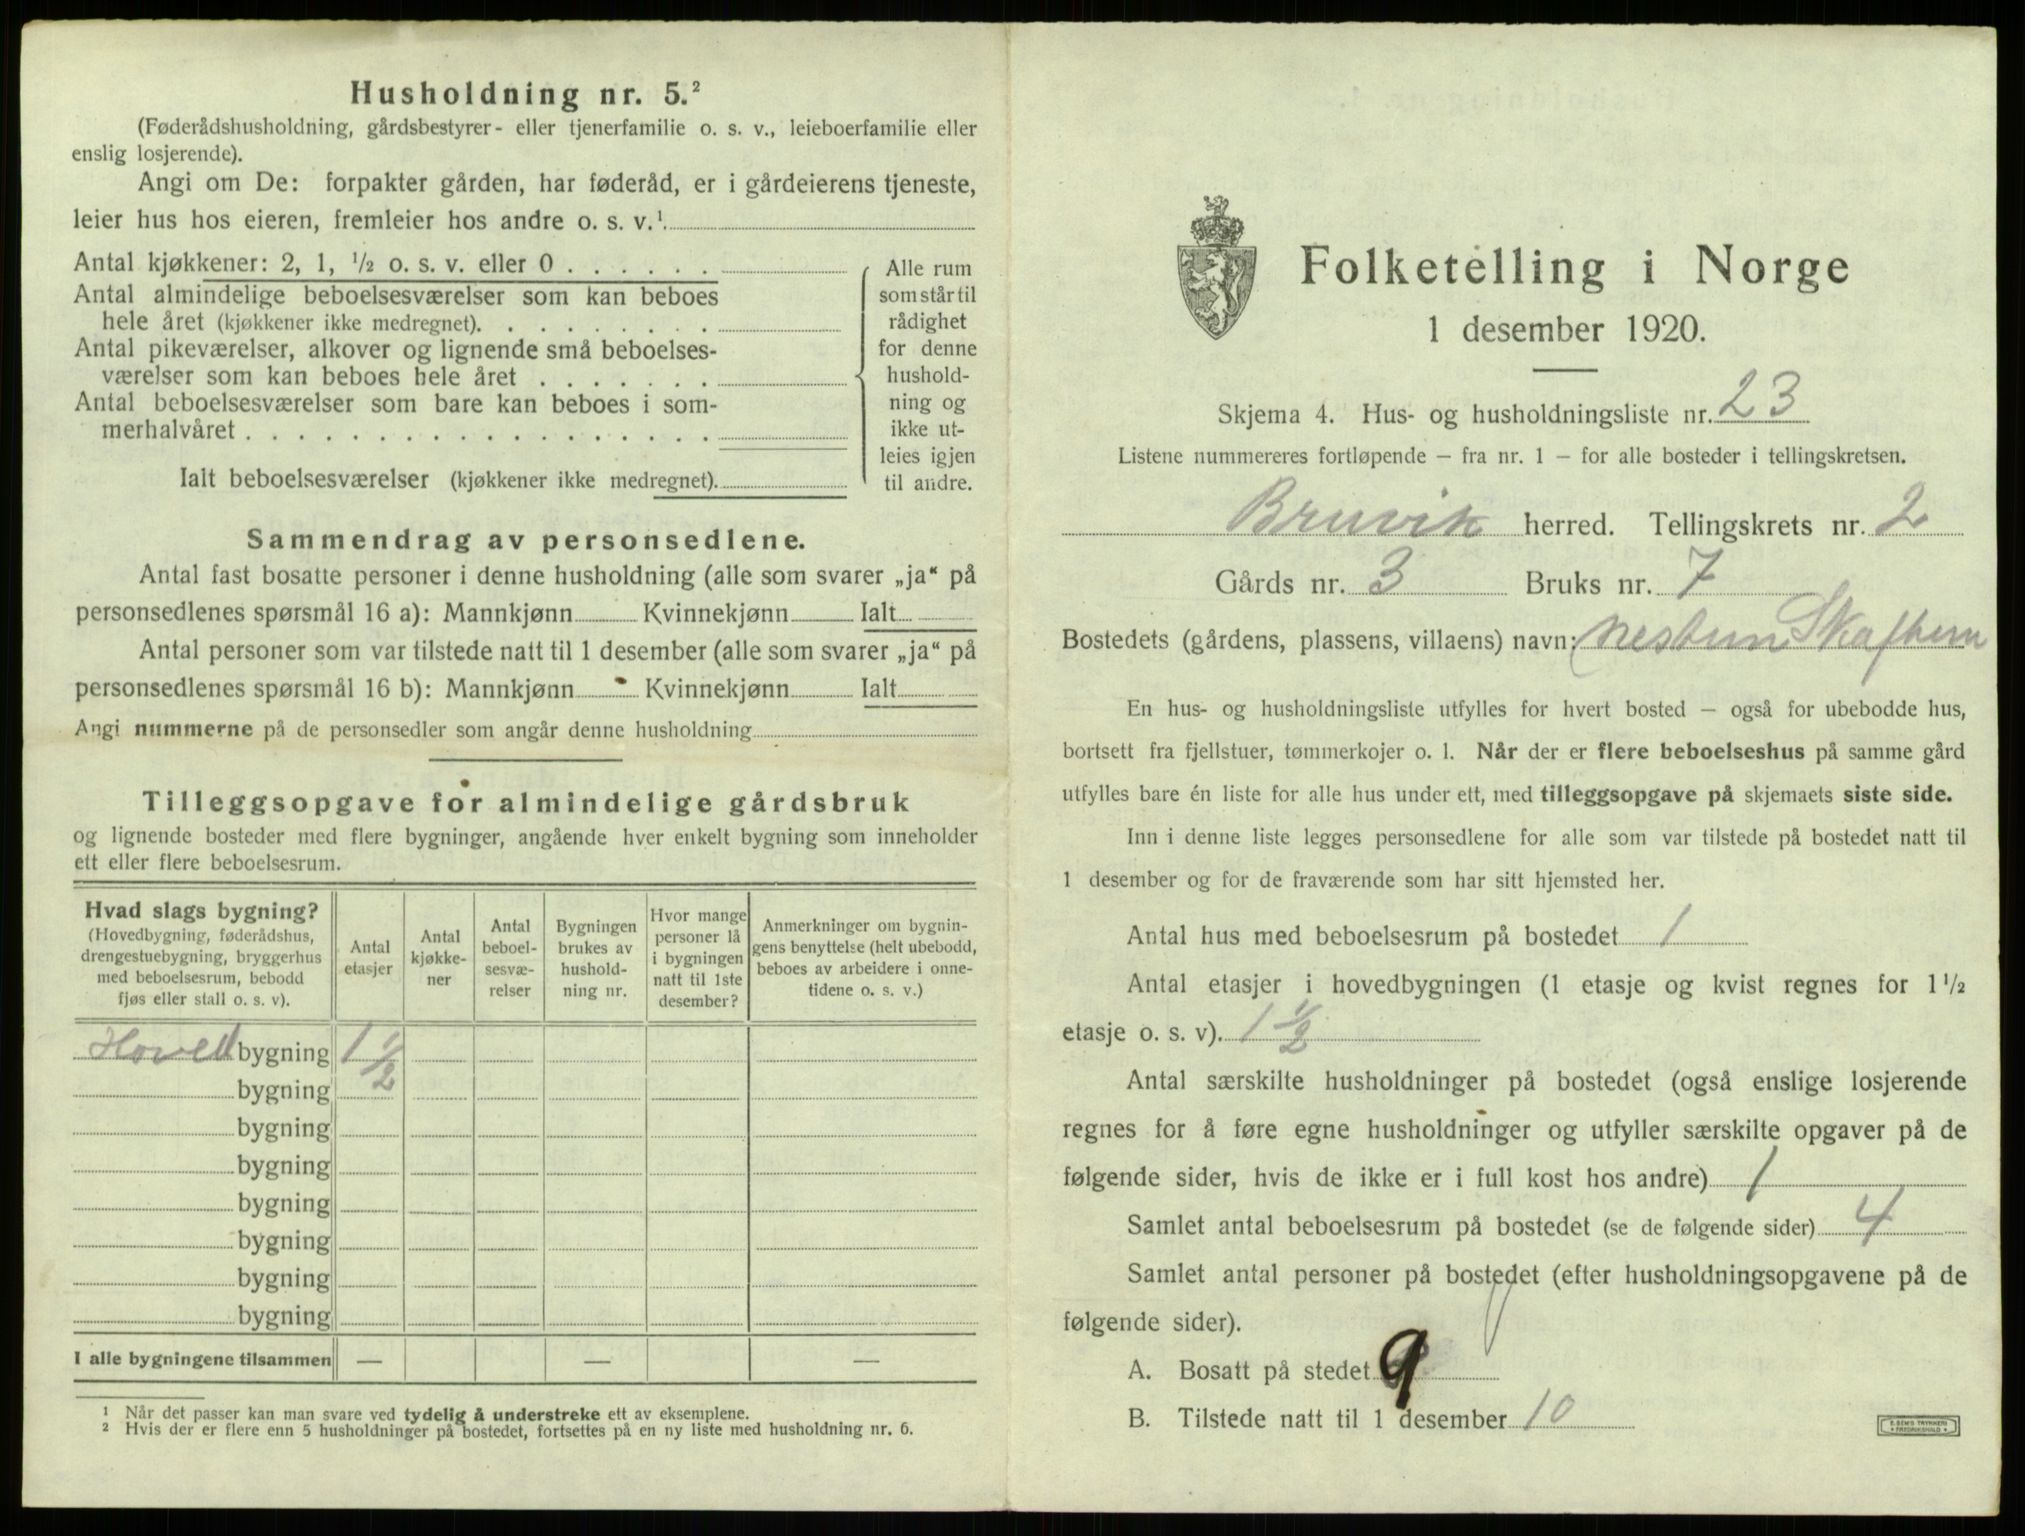 Husholdning nr. 5.²
(Føderådshusholdning, gårdsbestyrer- eller tjenerfamilie o. s. v., leieboerfamilie eller
enslig losjerende).
Angi om De: forpakter gården, har føderåd, er i gårdeierens tjeneste,
leier hus hos eieren, fremleier hos andre o. s. v.¹
Antal kjøkkener: 2, 1, ½ o. s. v. eller 0
Antal almindelige beboelsesværelser som kan beboes
hele året (kjøkkener ikke medregnet).
Antal pikeværelser, alkover og lignende små beboelses-
værelser som kan beboes hele året
Antal beboelsesværelser som bare kan beboes i som-
merhalvåret
Ialt beboelsesværelser (kjøkkener ikke medregnet).
Alle rum
som står til
rådighet
for denne
hushold-
ning og
ikke ut-
leies igjen
til andre.
Sammendrag av personsedlene.
Antal fast bosatte personer i denne husholdning (alle som svarer „ja“ på
personsedlenes spørsmål 16 a): Mannkjønn Kvinnekjønn Ialt
Antal personer som var tilstede natt til 1 desember (alle som svarer „ja“ på
personsedlenes spørsmål 16 b): Mannkjønn Kvinnekjønn Ialt
Angi nummerne på de personsedler som angår denne husholdning
Tilleggsopgave for almindelige gårdsbruk
og lignende bosteder med flere bygninger, angående hver enkelt bygning som inneholder
ett eller flere beboelsesrum.
Hvad slags bygning?
(Hovedbygning, føderådshus,
drengestuebygning, bryggerhus
med beboelsesrum, bebodd
fjøs eller stall o. s. v).
Antal
etasjer
Antal
kjøkke-
ner
Antal
beboel-
sesvæ-
relser
Bygningen
brukes av
hushold-
ning nr.
Hvor mange
personer lå
i bygningen
natt til 1ste
desember?
Anmerkninger om bygnin-
gens benyttelse (helt ubebodd,
beboes av arbeidere i onne-
tidene o. s. v.)
Hoved bygning 1 ½
bygning
bygning
bygning
bygning
bygning
bygning
bygning
I alle bygningene tilsammen — — —
¹ Når det passer kan man svare ved tydelig å understreke ett av eksemplene.
² Hvis der er flere enn 5 husholdninger på bostedet, fortsettes på en ny liste med husholdning nr. 6.
Folketelling i Norge
1 desember 1920.
Skjema 4. Hus- og husholdningsliste nr. 23
Listene nummereres fortløpende – fra nr. 1 – for alle bosteder i tellingskretsen.
Bruvik herred. Tellingskrets nr. 2
Gårds nr. 3 Bruks nr. 7
Bostedets (gårdens, plassens, villaens) navn:
En hus- og husholdningsliste utfylles for hvert bosted – også for ubebodde hus,
bortsett fra fjellstuer, tømmerkojer o. l. Når der er flere beboelseshus på samme gård
utfylles bare én liste for alle hus under ett, med tilleggsopgave på skjemaets siste side.
Inn i denne liste legges personsedlene for alle som var tilstede på bostedet natt til
1 desember og for de fraværende som har sitt hjemsted her.
Antal hus med beboelsesrum på bostedet 1
Antal etasjer i hovedbygningen (1 etasje og kvist regnes for 1½
etasje o. s. v). 1 ½
Antal særskilte husholdninger på bostedet (også enslige losjerende
regnes for å føre egne husholdninger og utfyller særskilte opgaver på de
følgende sider, hvis de ikke er i full kost hos andre) 1
Samlet antal beboelsesrum på bostedet (se de følgende sider) 4
Samlet antal personer på bostedet (efter husholdningsopgavene på de
følgende sider).
A. Bosatt på stedet 9
B. Tilstede natt til 1 desember 10
E. SEM'S TRYKKERI
• FREDRIKSHALD •